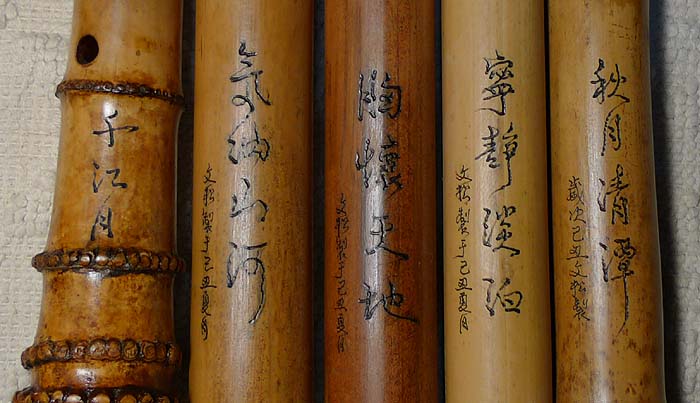 千江月
氣納山河
文松製于己丑夏月
胸懷天地
文松製于己丑夏月
寧靜淡泊
文松製于己丑夏月
秋月清潭
歲次己丑文松製